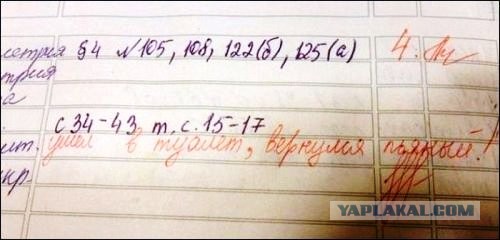 метрия §4 №105, 108, 122(б), 125(а) 4.
трия
а
с 34-43 т. с. 15-17
ит. ушёл в туалет, вернулся пьяный!
кр.
YAPLAKAL.COM